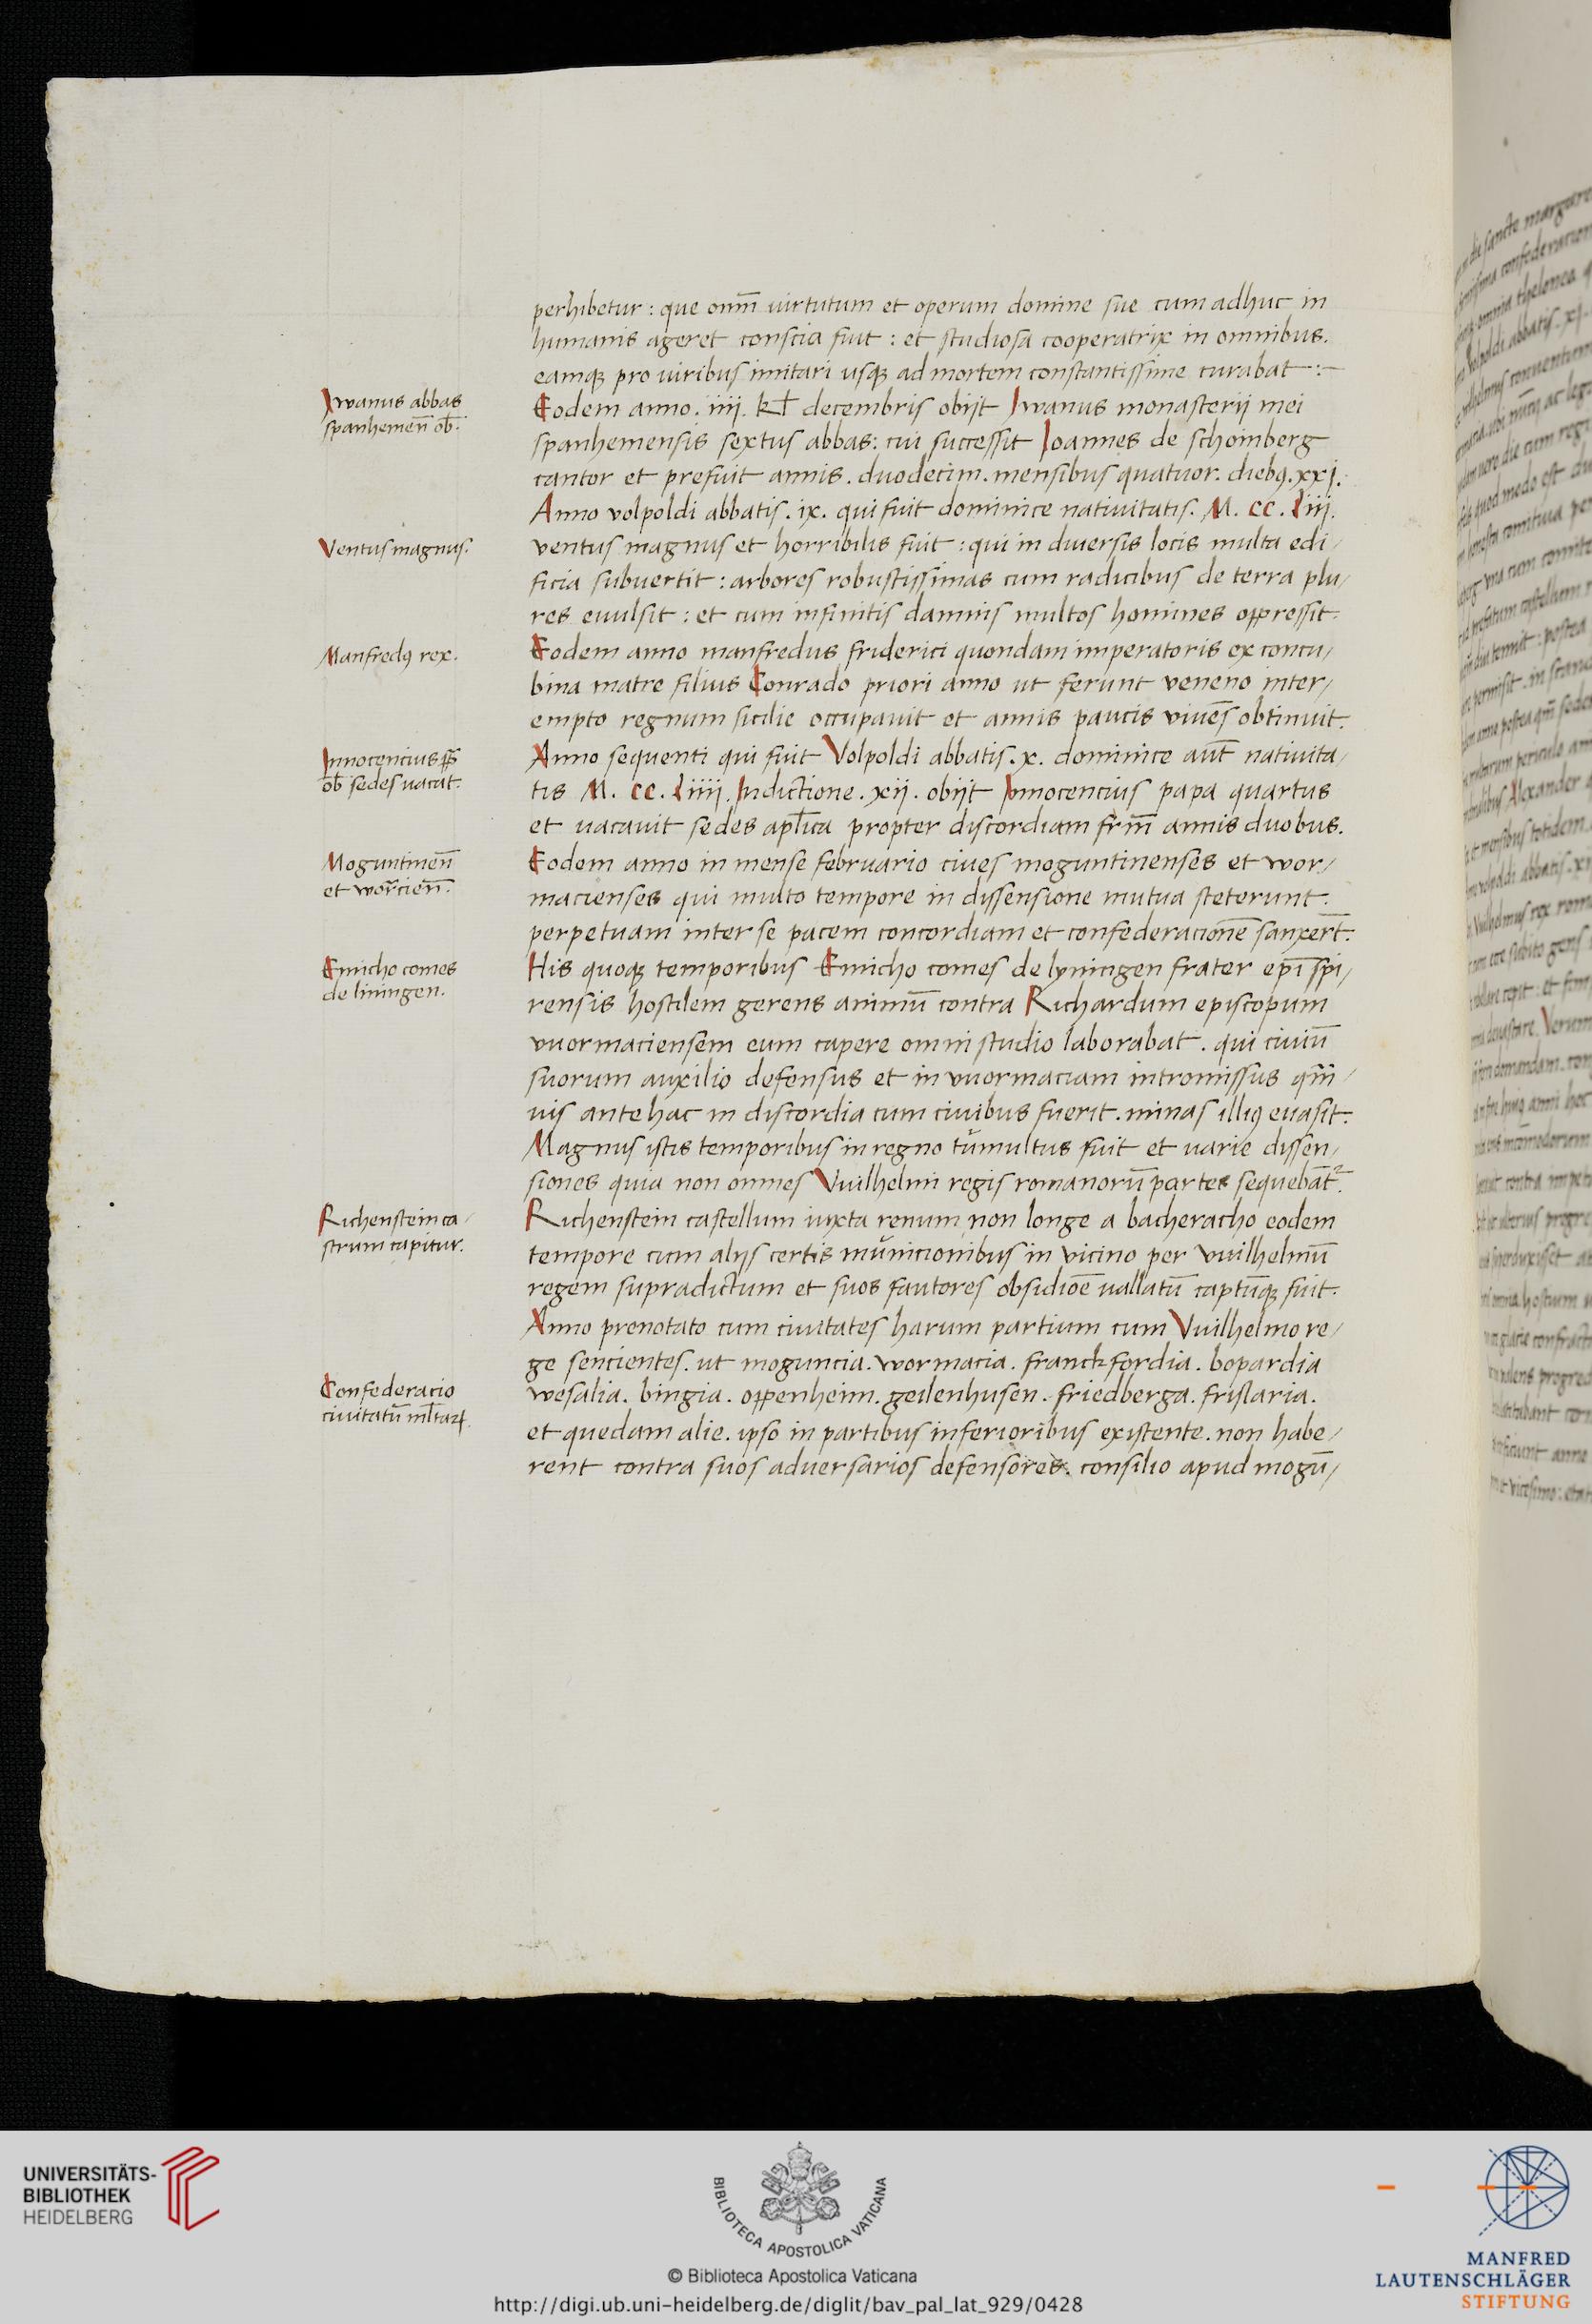 perhibetur : que om̄m virtutum et operum domine sue cum adhuc in
humanis ageret conscia fuit : et studiosa cooperatrix in omnibus.
eamqꝫ pro viribus imitari usqꝫ ad mortem constantissime curabat :-
Iwanus abbas
spanhemen̄ ob̄.
Eodem anno. iiij. kl̄ decembris obijt Iwanus monasterij mei
spanhemensis sextus abbas: cui successit Ioannes de schomberg
cantor et prefuit annis. duodecim. mensibus quatuor. diebꝯ. xxj.
Anno volpoldi abbatis. ix. qui fuit dominice nativitatis. M. cc. liij.
Ventus magnus.
ventus magnus et horribilis fuit : qui in diversis locis multa edi/
ficia subvertit : arbores robustissimas cum radicibus de terra plu/
res evulsit : et cum infinitis damnis multos homines oppressit.
Manfredꝯ rex.
Eodem anno manfredus friderici quondam imperatoris ex concu/
bina matre filius Conrado priori anno ut ferunt veneno inter/
empto regnum sicilie occupavit et annis paucis vivēs obtinuit.
Innocencius pp̄
ob̄ sedes vacat.
Anno sequenti qui fuit Volpoldi abbatis. x. dominice aūt nativita/
tis M. cc. liiij. Indictione. xij. obijt Innocencius papa quartus
et vacavit sedes apl̄ica propter discordiam fr̄m̄ annis duobus.
Moguntinen̄
et wor̄cien̄.
Eodem anno in mense februario cives moguntinenses et wor/
macienses qui multo tempore in dissensione mutua steterunt.
perpetuam inter se pacem concordiam et confederacionē sanxer̄t.
Emicho comes
de liningen.
His quoqꝫ temporibus Emicho comes de lyningen frater ep̄i spi/
rensis hostilem gerens animū contra Richardum episcopum
vuormaciensem eum capere omni studio laborabat. qui civiū
suorum auxilio defensus et in vuormaciam intromissus qm̄/
vis ante hac in discordia cum civibus fuerit. minas illiꝯ evasit.
Magnus istis temporibus in regno tumultus fuit et varie dissen/
siones quia non omnes Vuilhelmi regis romanorū partes sequebāt᷑.
Richenstein ca/
strum capitur.
Richenstein castellum iuxta renum non longe a bacheracho eodem
tempore cum alijs certis municionibus in vicino per vuilhelmū
regem supradictum et suos fautores obsidiōe vallatū captūqꝫ fuit.
Anno prenotato cum civitates harum partium cum Vuilhelmo re/
ge sencientes. ut moguncia. wormacia. franckfordia. bopardia
Confederacio
civitatū ml̄taꝝ.
wesalia. bingia. oppenheim. geilenhusen. friedberga. frislaria.
et quedam alie. ipso in partibus inferioribus existente. non habe/
rent contra suos adversarios defensores. consilio apud mogū/
UNIVERSITÄTS-
BIBLIOTHEK
HEIDELBERG
BIBLIOTECA APOSTOLICA VATICANA
© Biblioteca Apostolica Vaticana
http://digi.ub.uni-heidelberg.de/diglit/bav_pal_lat_929/0428
MANFRED
LAUTENSCHLÄGER
STIFTUNG